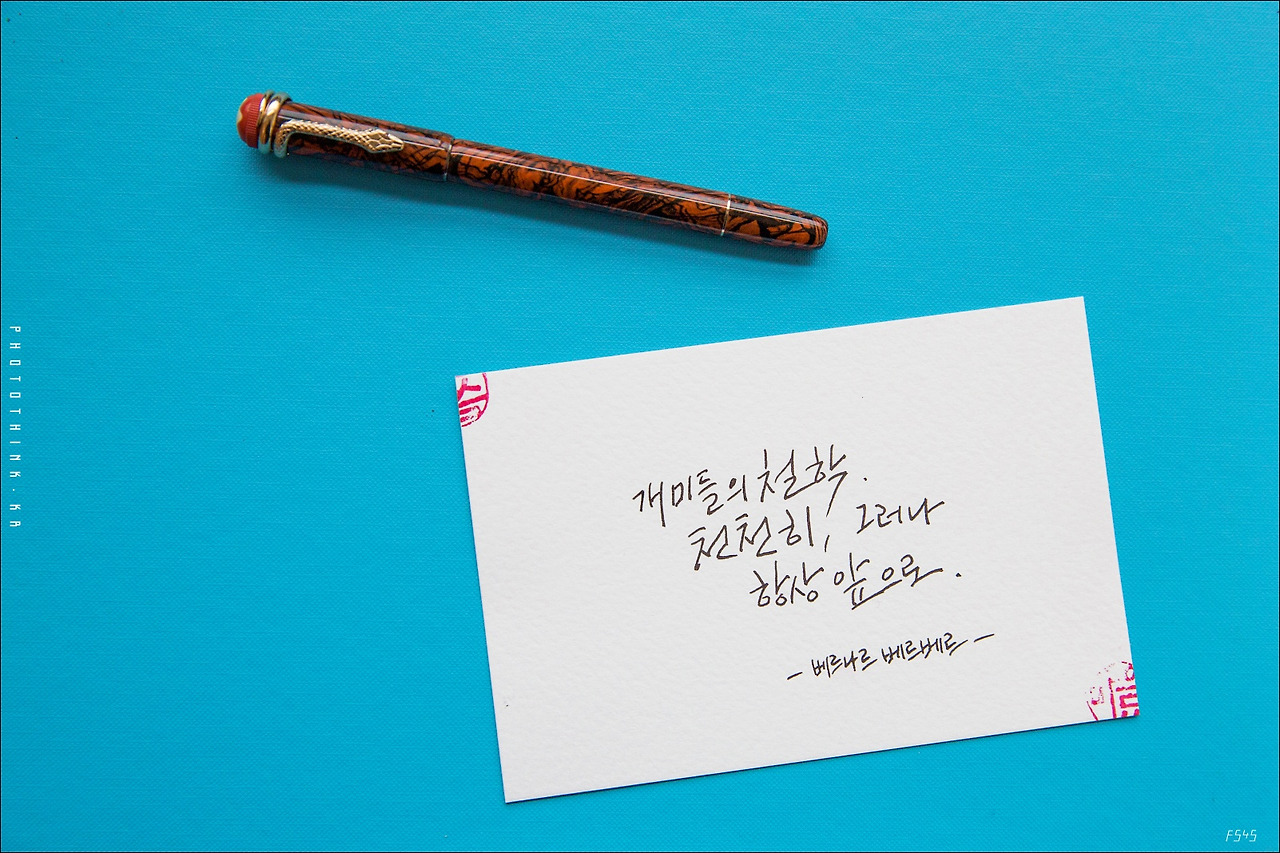 개미들의 철학.
천천히, 그러나
항상 앞으로.
- 베르나르 베르베르 -
PHOTOTHINK.KR
FS45